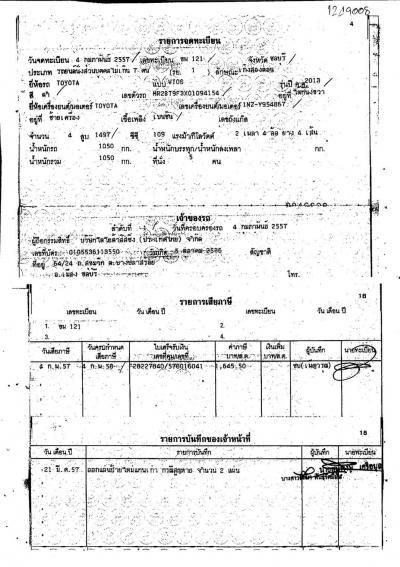 1219008
4
รายการจดทะเบียน
วันจดทะเบียน 4 กุมภาพันธ์ 2557 เลขทะเบียน ขม 121 จังหวัด ชลบุรี
ประเภท รถยนต์นั่งส่วนบุคคลไม่เกิน 7 คน (รย. 1 ) ลักษณะ เก๋งสองตอน
ยี่ห้อรถ TOYOTA แบบ VIOS รุ่นปี ค.ศ. 2013
สี ดำ เลขตัวรถ อยู่ที่
ยี่ห้อเครื่องยนต์/มอเตอร์ TOYOTA เลขเครื่องยนต์/มอเตอร์ 1NZ-Y954867
อยู่ที่ เชื้อเพลิง เบนซิน เลขถังแก๊ส
จำนวน 4 สูบ 1497 ซีซี 109 แรงม้า/กิโลวัตต์ 2 เพลา 4 ล้อ ยาง 4 เส้น
น้ำหนักรถ 1050 กก. น้ำหนักบรรทุก/น้ำหนักลงเพลา กก.
น้ำหนักรวม 1050 กก. ที่นั่ง 5 คน
เจ้าของรถ
ลำดับที่ 1 วันที่ครอบครองรถ 4 กุมภาพันธ์ 2557
ผู้ถือกรรมสิทธิ์ บริษัท (ประเทศไทย) จำกัด
เลขที่บัตร สัญชาติ
ที่อยู่ 54/24
อ.เมือง ชลบุรี โทร.
18
รายการเสียภาษี
เลขทะเบียน วัน เดือน ปี เลขทะเบียน วัน เดือน ปี
1. ขม 121 2.
3. 4.
วันเสียภาษี วันครบกำหนดเสียภาษี ใบเสร็จรับเงิน เล่มที่/เลขที่ ค่าภาษี บาท/ส.ต. เงินเพิ่ม บาท/ส.ต. ผู้บันทึก นายทะเบียน
4 ก.พ.57 4 ก.พ.58 1,645.50
18
รายการบันทึกของเจ้าหน้าที่
วัน เดือน ปี รายการบันทึก ผู้บันทึก นายทะเบียน
21 มี.ค.57 จำนวน 2 แผ่น